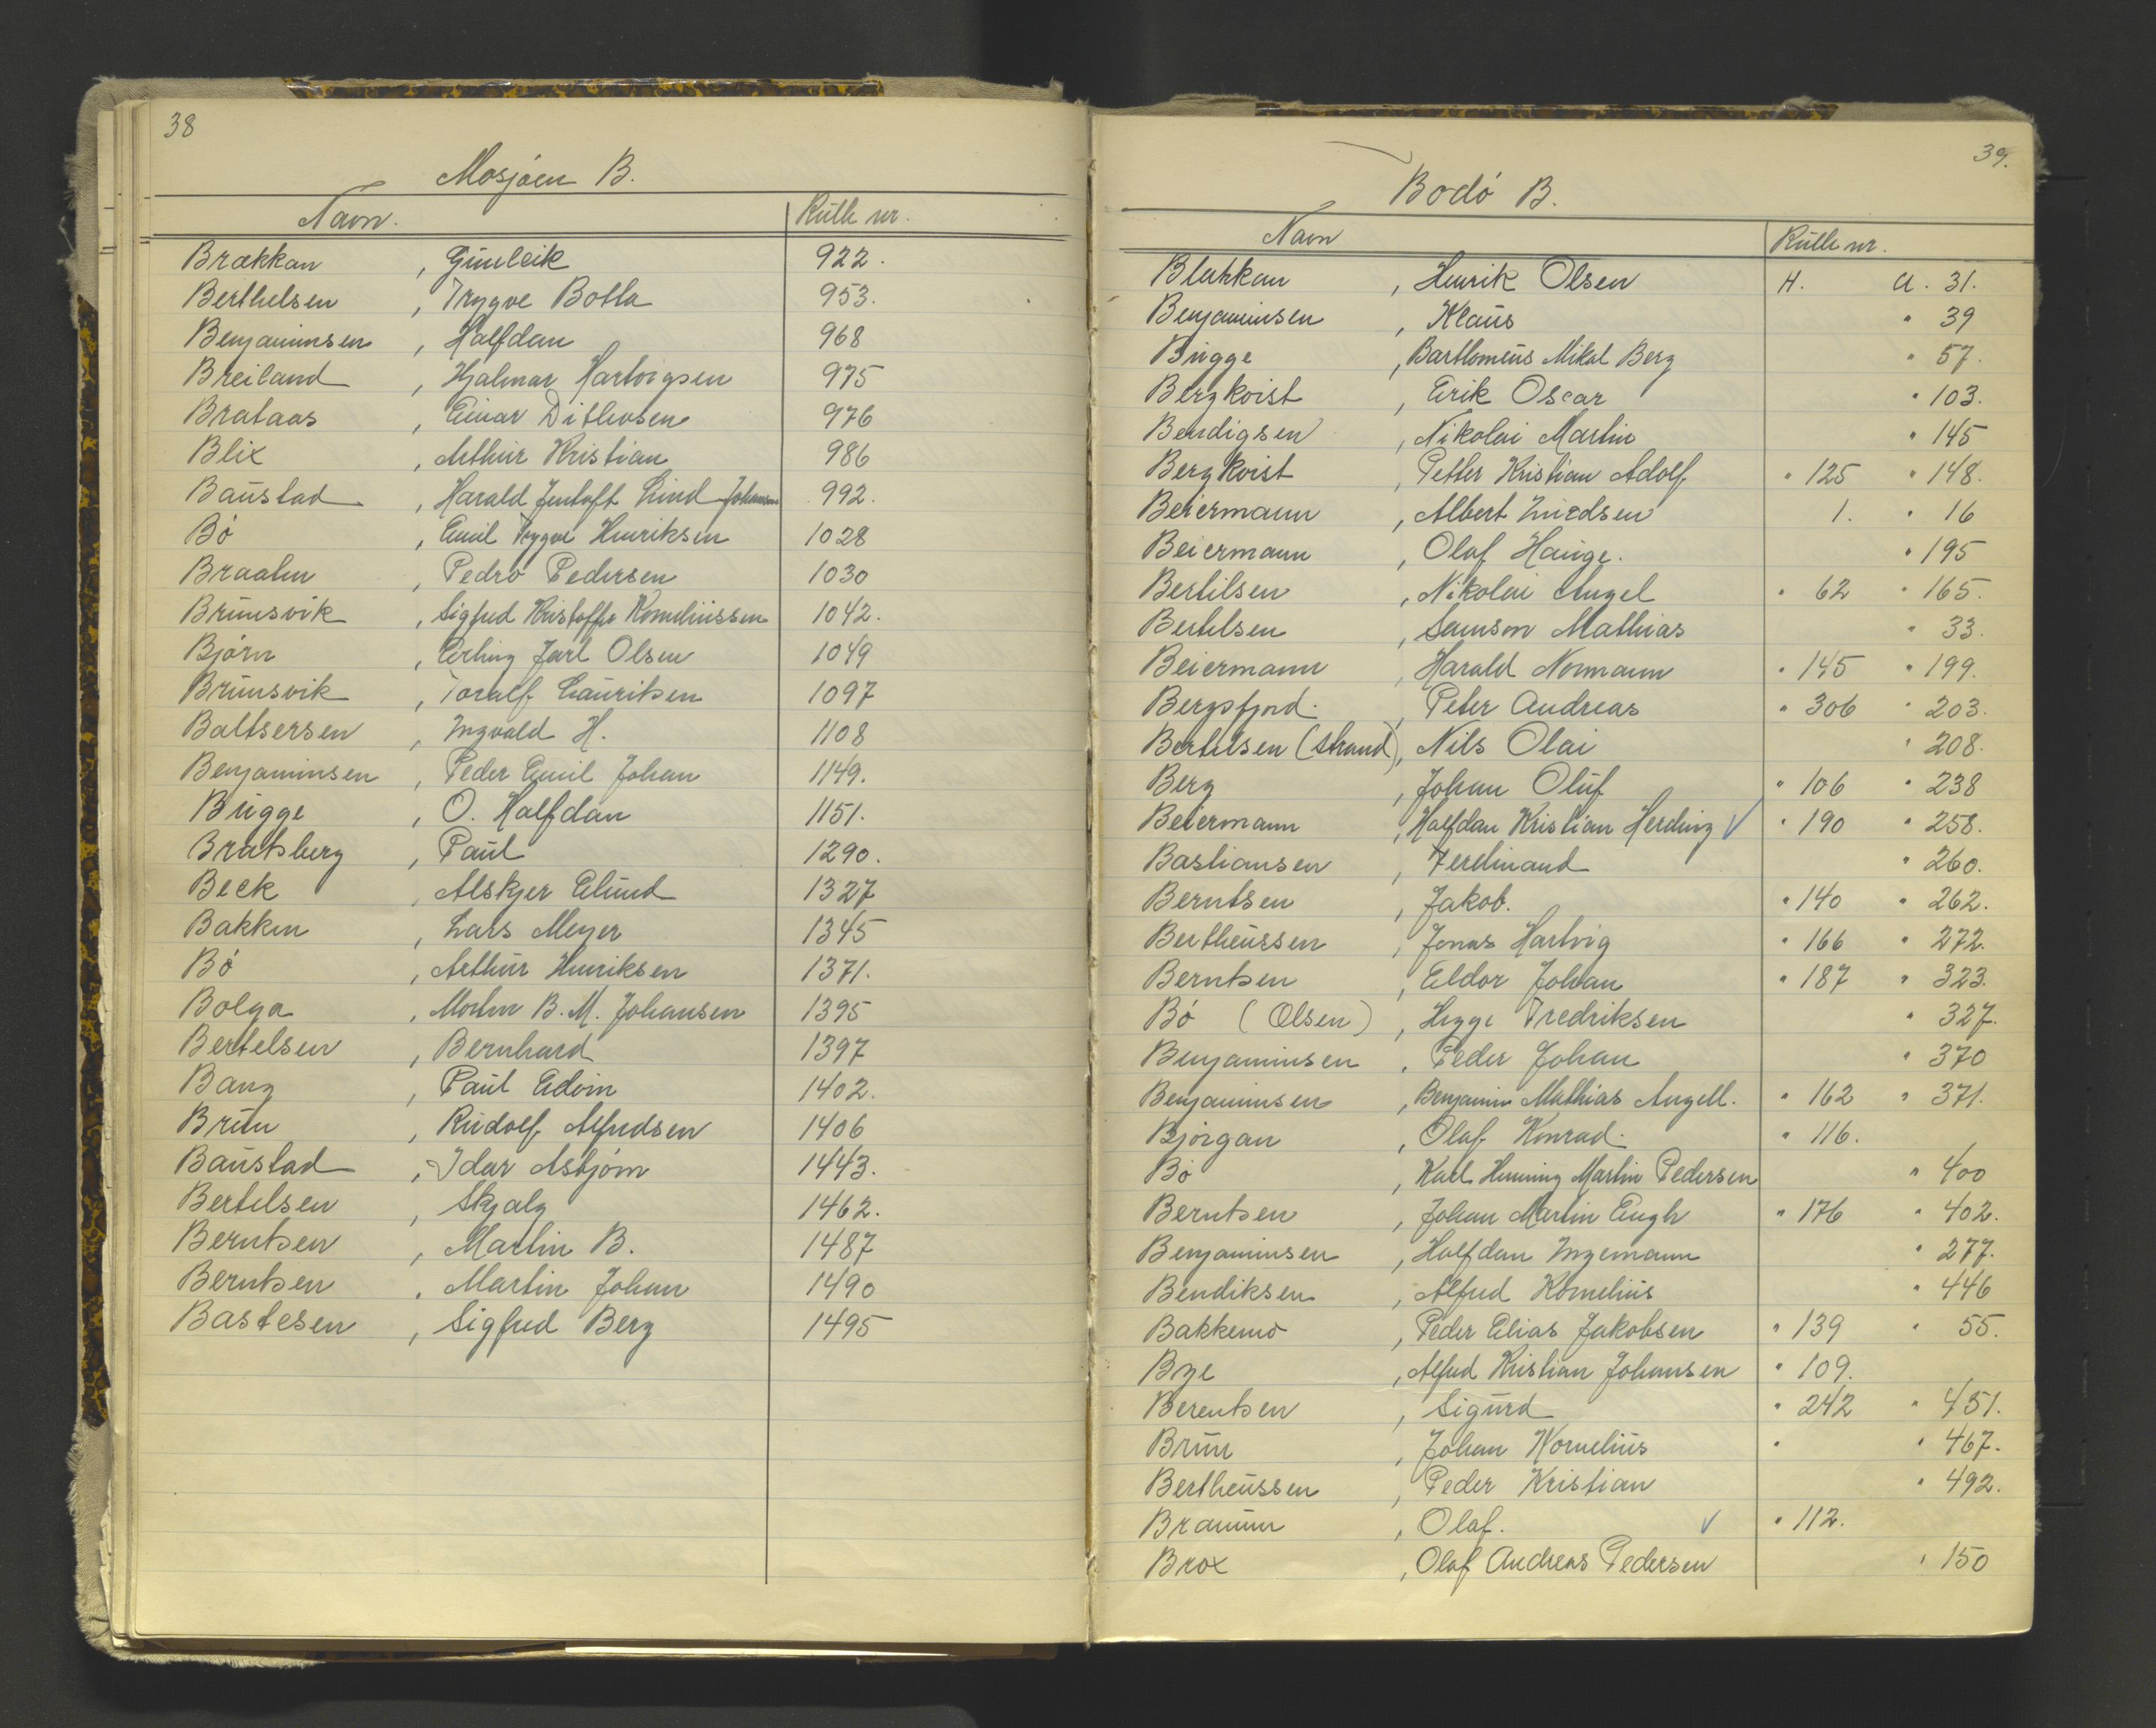 38
Mosjøen B.
Navn. Rulle nr.
Brækkan, Gunleik 922.
Berthelsen, Trygve Botla 953.
Benjaminsen, Halfdan 968
Breiland, Hjalmar Hartvigsen 975
Brataas, Einar Ditlevsen 976
Blix, Arthur Kristian 986
Baustad, Harald Jentoft Lind Johansen 992.
Bø, Emil Trygve Henriksen 1028
Braaten, Pedro Pedersen 1030
Brunsvik, Sigfred Kristoffer Korneliussen 1042.
Bjørn, Erling Jarl Olsen 1049
Brunsvik, Toralf Lauritsen 1097
Baltsersen, Ingvald H. 1108
Benjaminsen, Peder Emil Johan 1149.
Bugge, O. Halfdan 1151.
Bratsberg, Paul 1290.
Beck, Alskjer Elund 1327
Bakken, Lars Meyer 1345
Bø, Arthur Henriksen 1371.
Bolga, Morten B. M. Johansen 1395
Bertelsen, Bernhard 1397
Bang, Paul Edvin 1402.
Brun, Rudolf Alfredsen 1406
Baustad, Idar Asbjørn 1443.
Bertelsen, Skjalg 1462.
Berntsen, Martin B. 1487
Berntsen, Martin Johan 1490
Bastesen, Sigfred Berg 1495
39.
Bodø B.
Navn Rulle nr.
Blakkan, Henrik Olsen H. A. 31.
Benjaminsen, Klaus " 39
Bugge, Bartlomeus Mikal Berg " 57.
Bergkvist, Erik Oscar " 103.
Bendigsen, Nikolai Martin " 145
Bergkvist, Petter Kristian Adolf " 125 " 148.
Beiermann, Albert 1. " 16
Beiermann, Olaf Hauge. " 195
Bertilsen, Nikolai Angel " 62 " 165.
Bertelsen, Samson Mathias " 33.
Beiermann, Harald Normann " 145 " 199.
Bergsfjord, Peter Andreas " 306 " 203.
Bertelsen (Strand), Nils Olai " 208.
Berg, Johan Oluf " 106 " 238
Beiermann, Halfdan Kristian Herding ✓ " 190 " 258.
Bastiansen, Ferdinand " 260.
Berntsen, Jakob. " 140 " 262.
Bertheussen, Jonas Hartvig " 166 " 272.
Berntsen, Eldor Johan " 187 " 323.
Bø (Olsen), Hegge Fredriksen " 327.
Benjaminsen, Peder Johan " 370
Benjaminsen, Benjamin Mathias Angell. " 162 " 371.
Bjørgan, Olaf Konrad. " 116.
Bø, Karl Henning Martin Pedersen " 400
Berntsen, Johan Martin Engh " 176 " 402.
Benjaminsen, Halfdan Ingemann " 277.
Bendiksen, Alfred Kornelius " 446
Bakkemo, Peder Elias Jakobsen " 139 " 55.
Bye, Alfred Kristian Johansen " 109.
Berentsen, Sigurd " 242 " 451.
Brun, Johan Kornelius " " 467.
Bertheussen, Peder Kristian " 492.
Bramun, Olaf. ✓ " 112.
Brox, Olaf Andreas Pedersen " 150